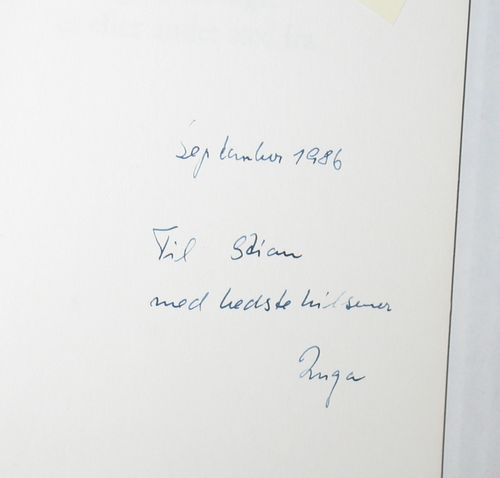 september 1986
Til Stian
med bedste hilsener
Inga